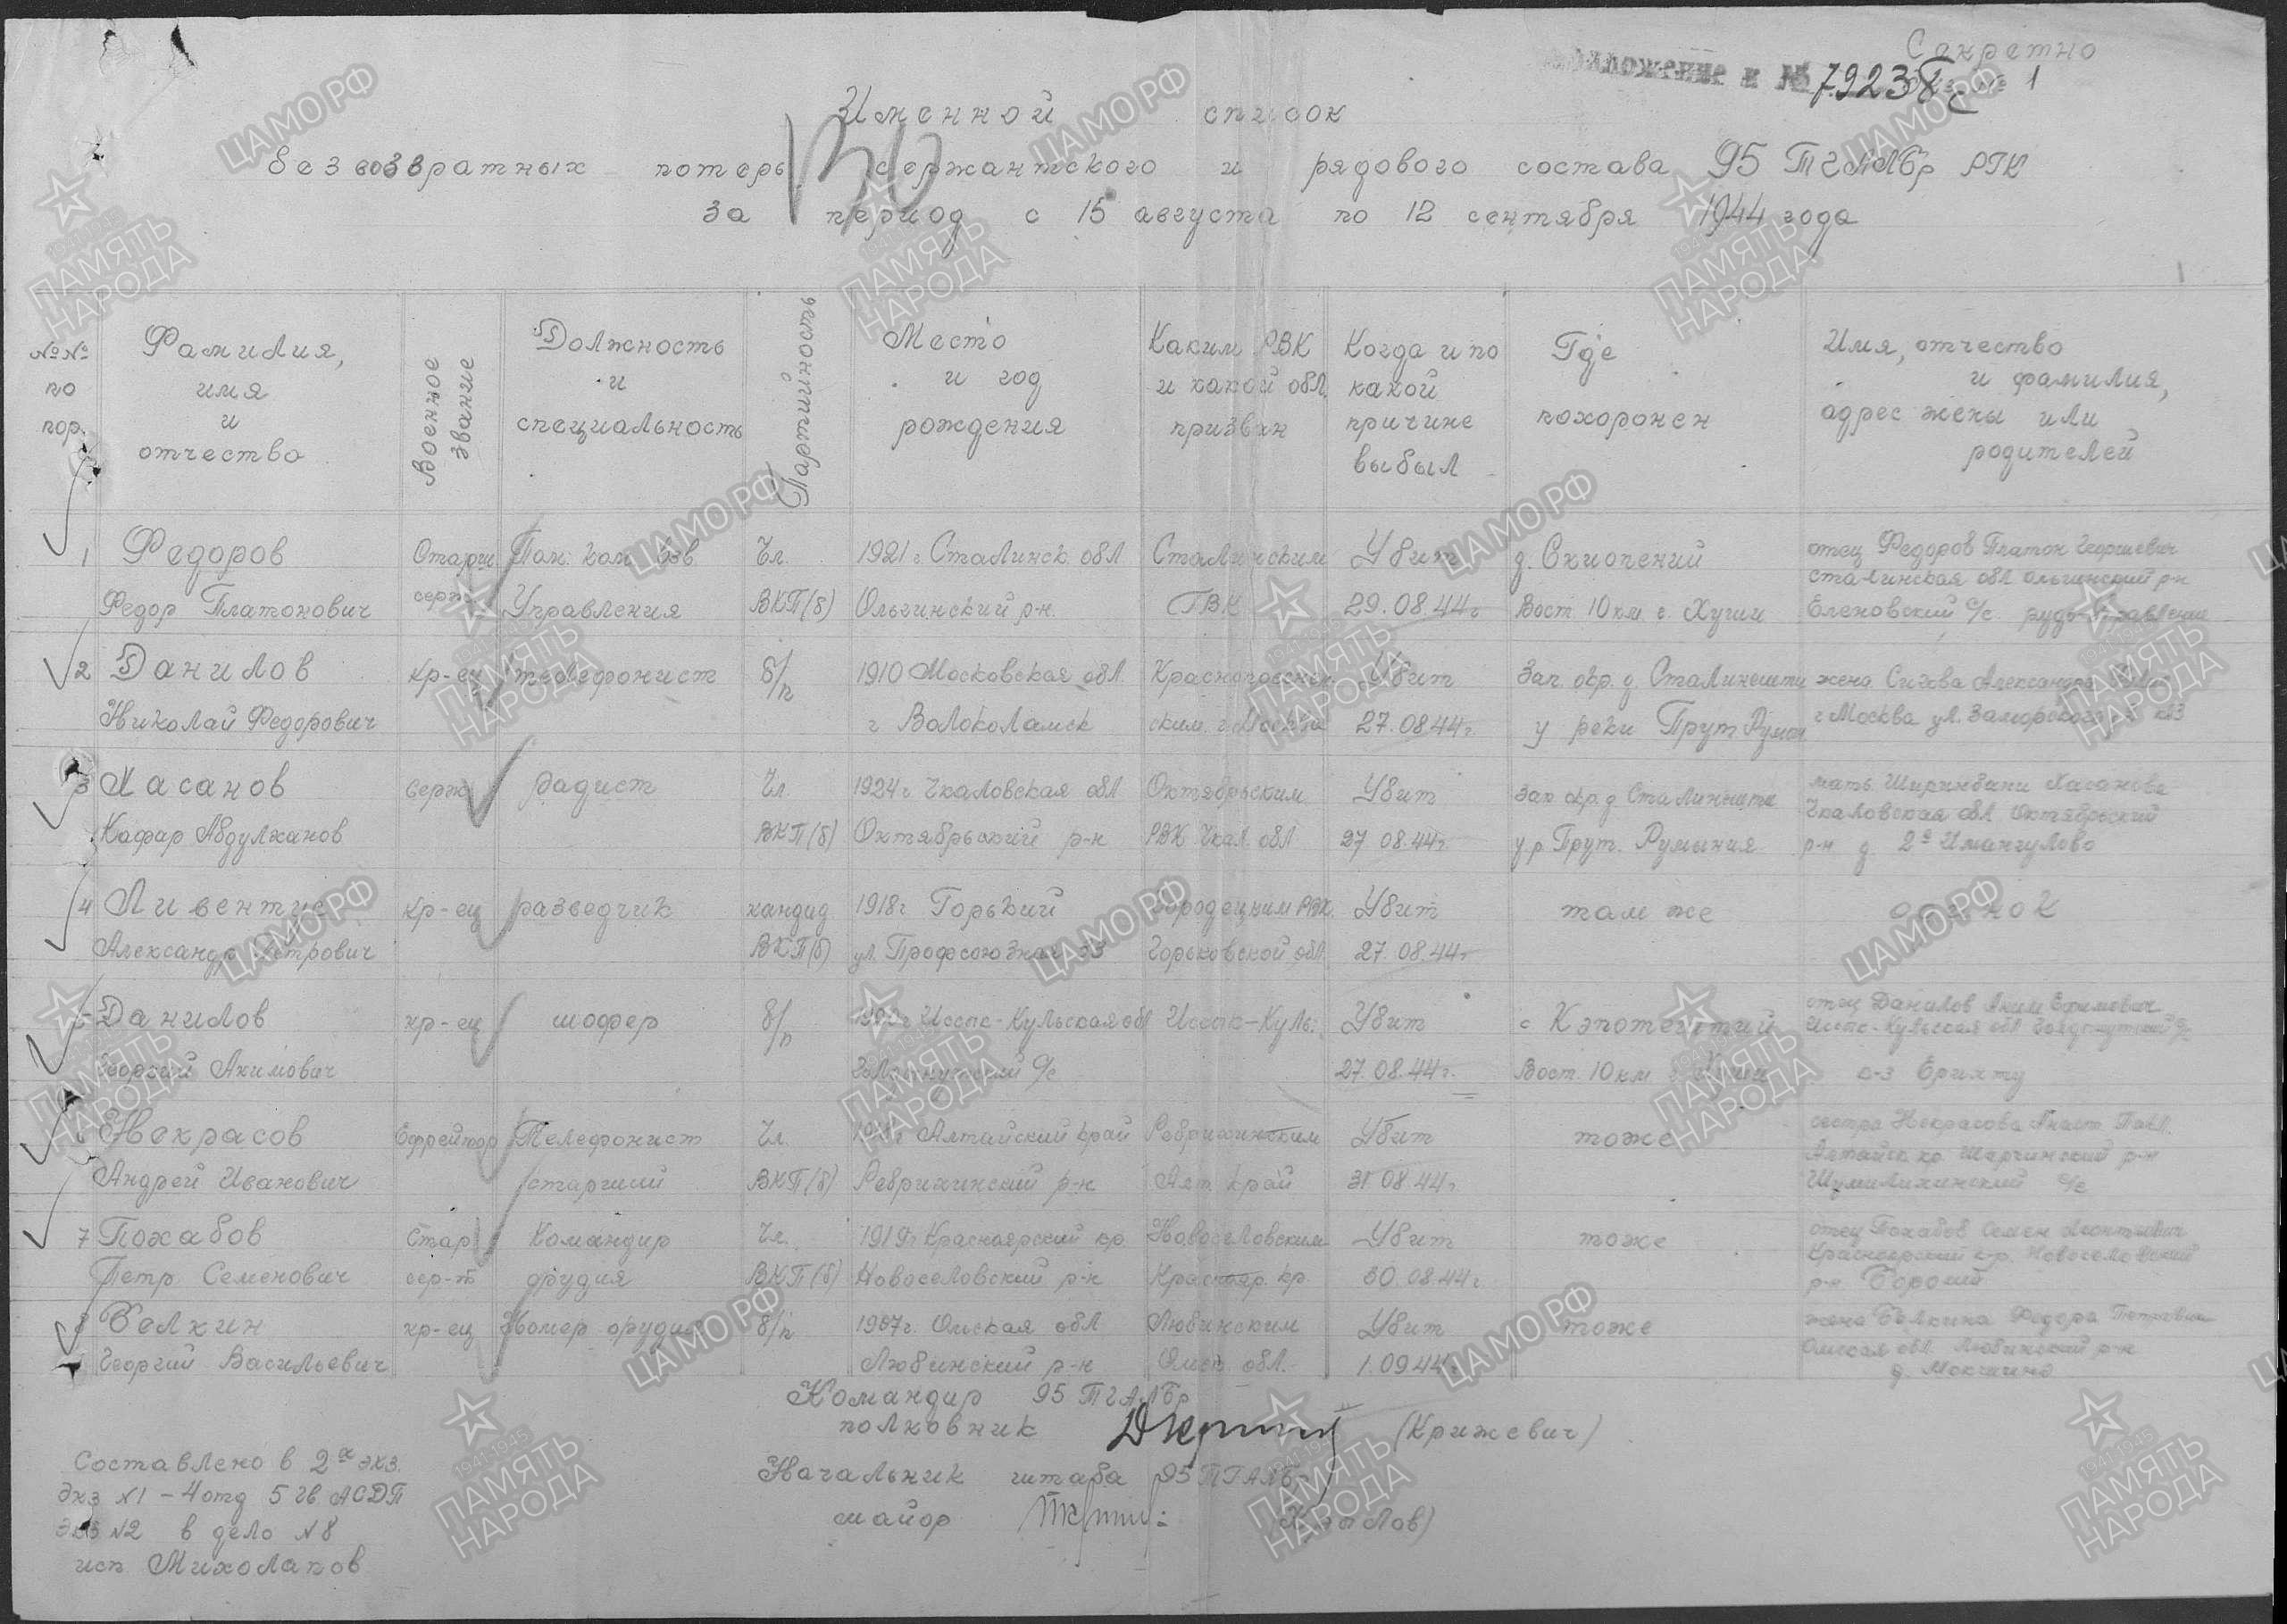 Секретно
Приложение к № 79238с
№ 1
Именной список
безвозвратных потерь сержантского и рядового состава 95 ТГАЛБр РГК
за период с 15 августа по 12 сентября 1944 года
№№ по пор.
Фамилия, имя и отчество
Военное звание
Должность и специальность
Партийность
Место и год рождения
Каким РВК и какой обл. призван
Когда и по какой причине выбыл
Где похоронен
Имя, отчество и фамилия, адрес жены или родителей
1 Федоров Старш Пом. ком. взв. Чл. 1921 г. Сталинск. обл Сталинским Убит д. отец Федоров Платон Георгиевич
Сталинская обл Ольгинский р-н
Федор Платонович серж Управления ВКП(б) Ольгинский р-н. ГВК 29.08.44г Вост. 10 км г. Хуши Еленовский с/с рудоуправление
2 Данилов кр-ец телефонист б/п 1910 Московская обл. Убит Зап. окр. д. Сталинешти жена Александра
Николай Федорович г Волоколамск ским г. Москвы 27.08.44г. у реки Прут Румын г Москва ул.
3 Хасанов серж радист Чл 1924г Чкаловская обл Октябрьским Убит Зап. окр. д. мать Хасанова
Чкаловская обл Октябрьский
Кафар Абдулханов ВКП(б) Октябрьский р-н РВК Чкал. обл 27 08.44г. у р. Прут. Румыния р-н д. 2е Имангулово
4 Ливентус кр-ец разведчик кандид 1918г Горький Городецким РВК Убит там же одинок
Александр Петрович ВКП(б) ул. Профсоюзная 33 Горьковской обл. 27.08.44г
5 Данилов кр-ец шофер б/п Иссык-Кульская обл Иссык-Куль. Убит с отец Данилов Аким Ефимович
Иссык-Кульская обл с/с
Георгий Акимович с/с 27.08.44г. Вост. 10 км г. Хуши к-з
6 Некрасов Ефрейтор Телефонист Чл. Алтайский край Ребрихинским Убит тоже сестра Некрасова Анаст. Павл.
Алтайск кр. р-н
Андрей Иванович старший ВКП(б) Ребрихинский р-н Алт. край 31 08.44г. Шумилихинский с/с
7 Похабов Стар Командир Чл. 1919г Красноярский кр Новоселовским Убит тоже отец Похабов Семен Леонтьевич
Красноярский к-р. Новоселовский
Петр Семенович сер-т орудия ВКП(б) Новоселовский р-н Краснояр. кр. 30.08.44г р-н
8 Белкин кр-ец Номер орудия б/п 1907г. Омская обл Любинским Убит тоже жена Белкина
Омская обл. Любинский р-н
Георгий Васильевич Любинский р-н Омск. обл. 1.09.44г. д.
Командир 95 ТГАЛБр
полковник (Крижевич)
Начальник штаба 95 ТГАЛБр
майор
Составлено в 2х экз.
Экз №1 – 4 отд 5 гв АСДП
Экз №2 в дело №8
исп Михолапов
ЦАМО.РФ
1941-1945
ПАМЯТЬ НАРОДА